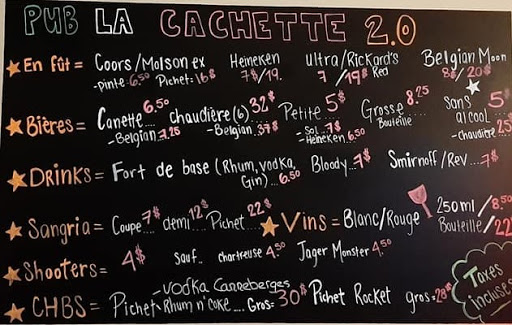 PUB LA CACHETTE 2.0
En fût = Coors/Molson ex Heineken Ultra/Rickard's Belgian Moon
-pinte 6.50 Pichet=16$ 7$/19. 7 /19$ Red 8$/20$
Bières = Canette 6.50 chaudière(6) 32$ Petite 5$ Grosse 8.25 Sans 5$
Bouteille alcool
-Belgian 7.25 -Belgian 37$ -Sol 7$ -chaudière 25
-Heineken 6.50
DRINKS = Fort de base (Rhum, vodka, Bloody...7$ Smirnoff/Rev...7$
Gin)...6.50
Sangria = Coupe 7$ demi 12$ Pichet 22$ Vins = Blanc/Rouge 250ml /8.50
Bouteille /22
Shooters = 4$ Sauf.. chartreuse 4.50 Jager Monster 4.50
CHBS = Pichet -vodka Canneberges
Rhum n' coke.... Gros=30$ Pichet Rocket gros=28$
Taxes
incluses